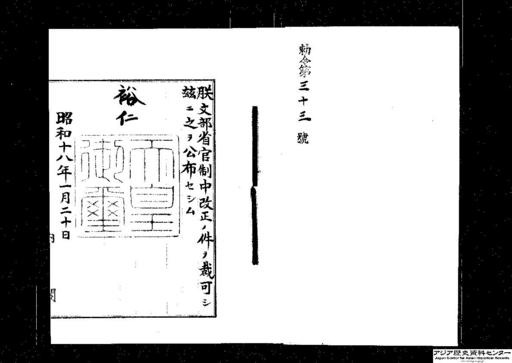 勅令第三十三號
朕文部省官制中改正ノ件ヲ裁可シ
玆ニ之ヲ公布セシム
裕仁
天皇御璽
昭和十八年一月二十日
内閣
アジア歴史資料センター
Japan Center for Asian Historical Records